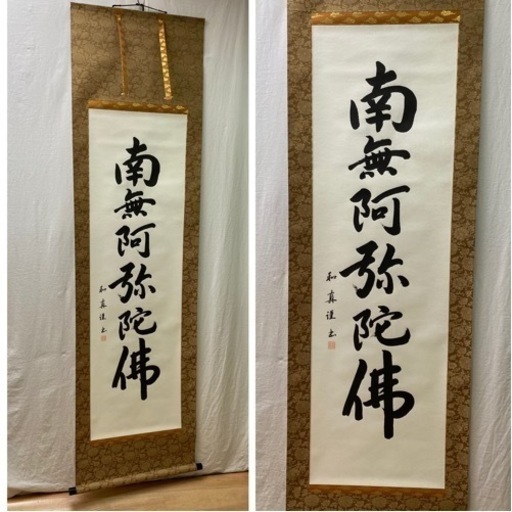 南無阿弥陀佛
和真謹書
南無阿弥陀佛
和真謹書